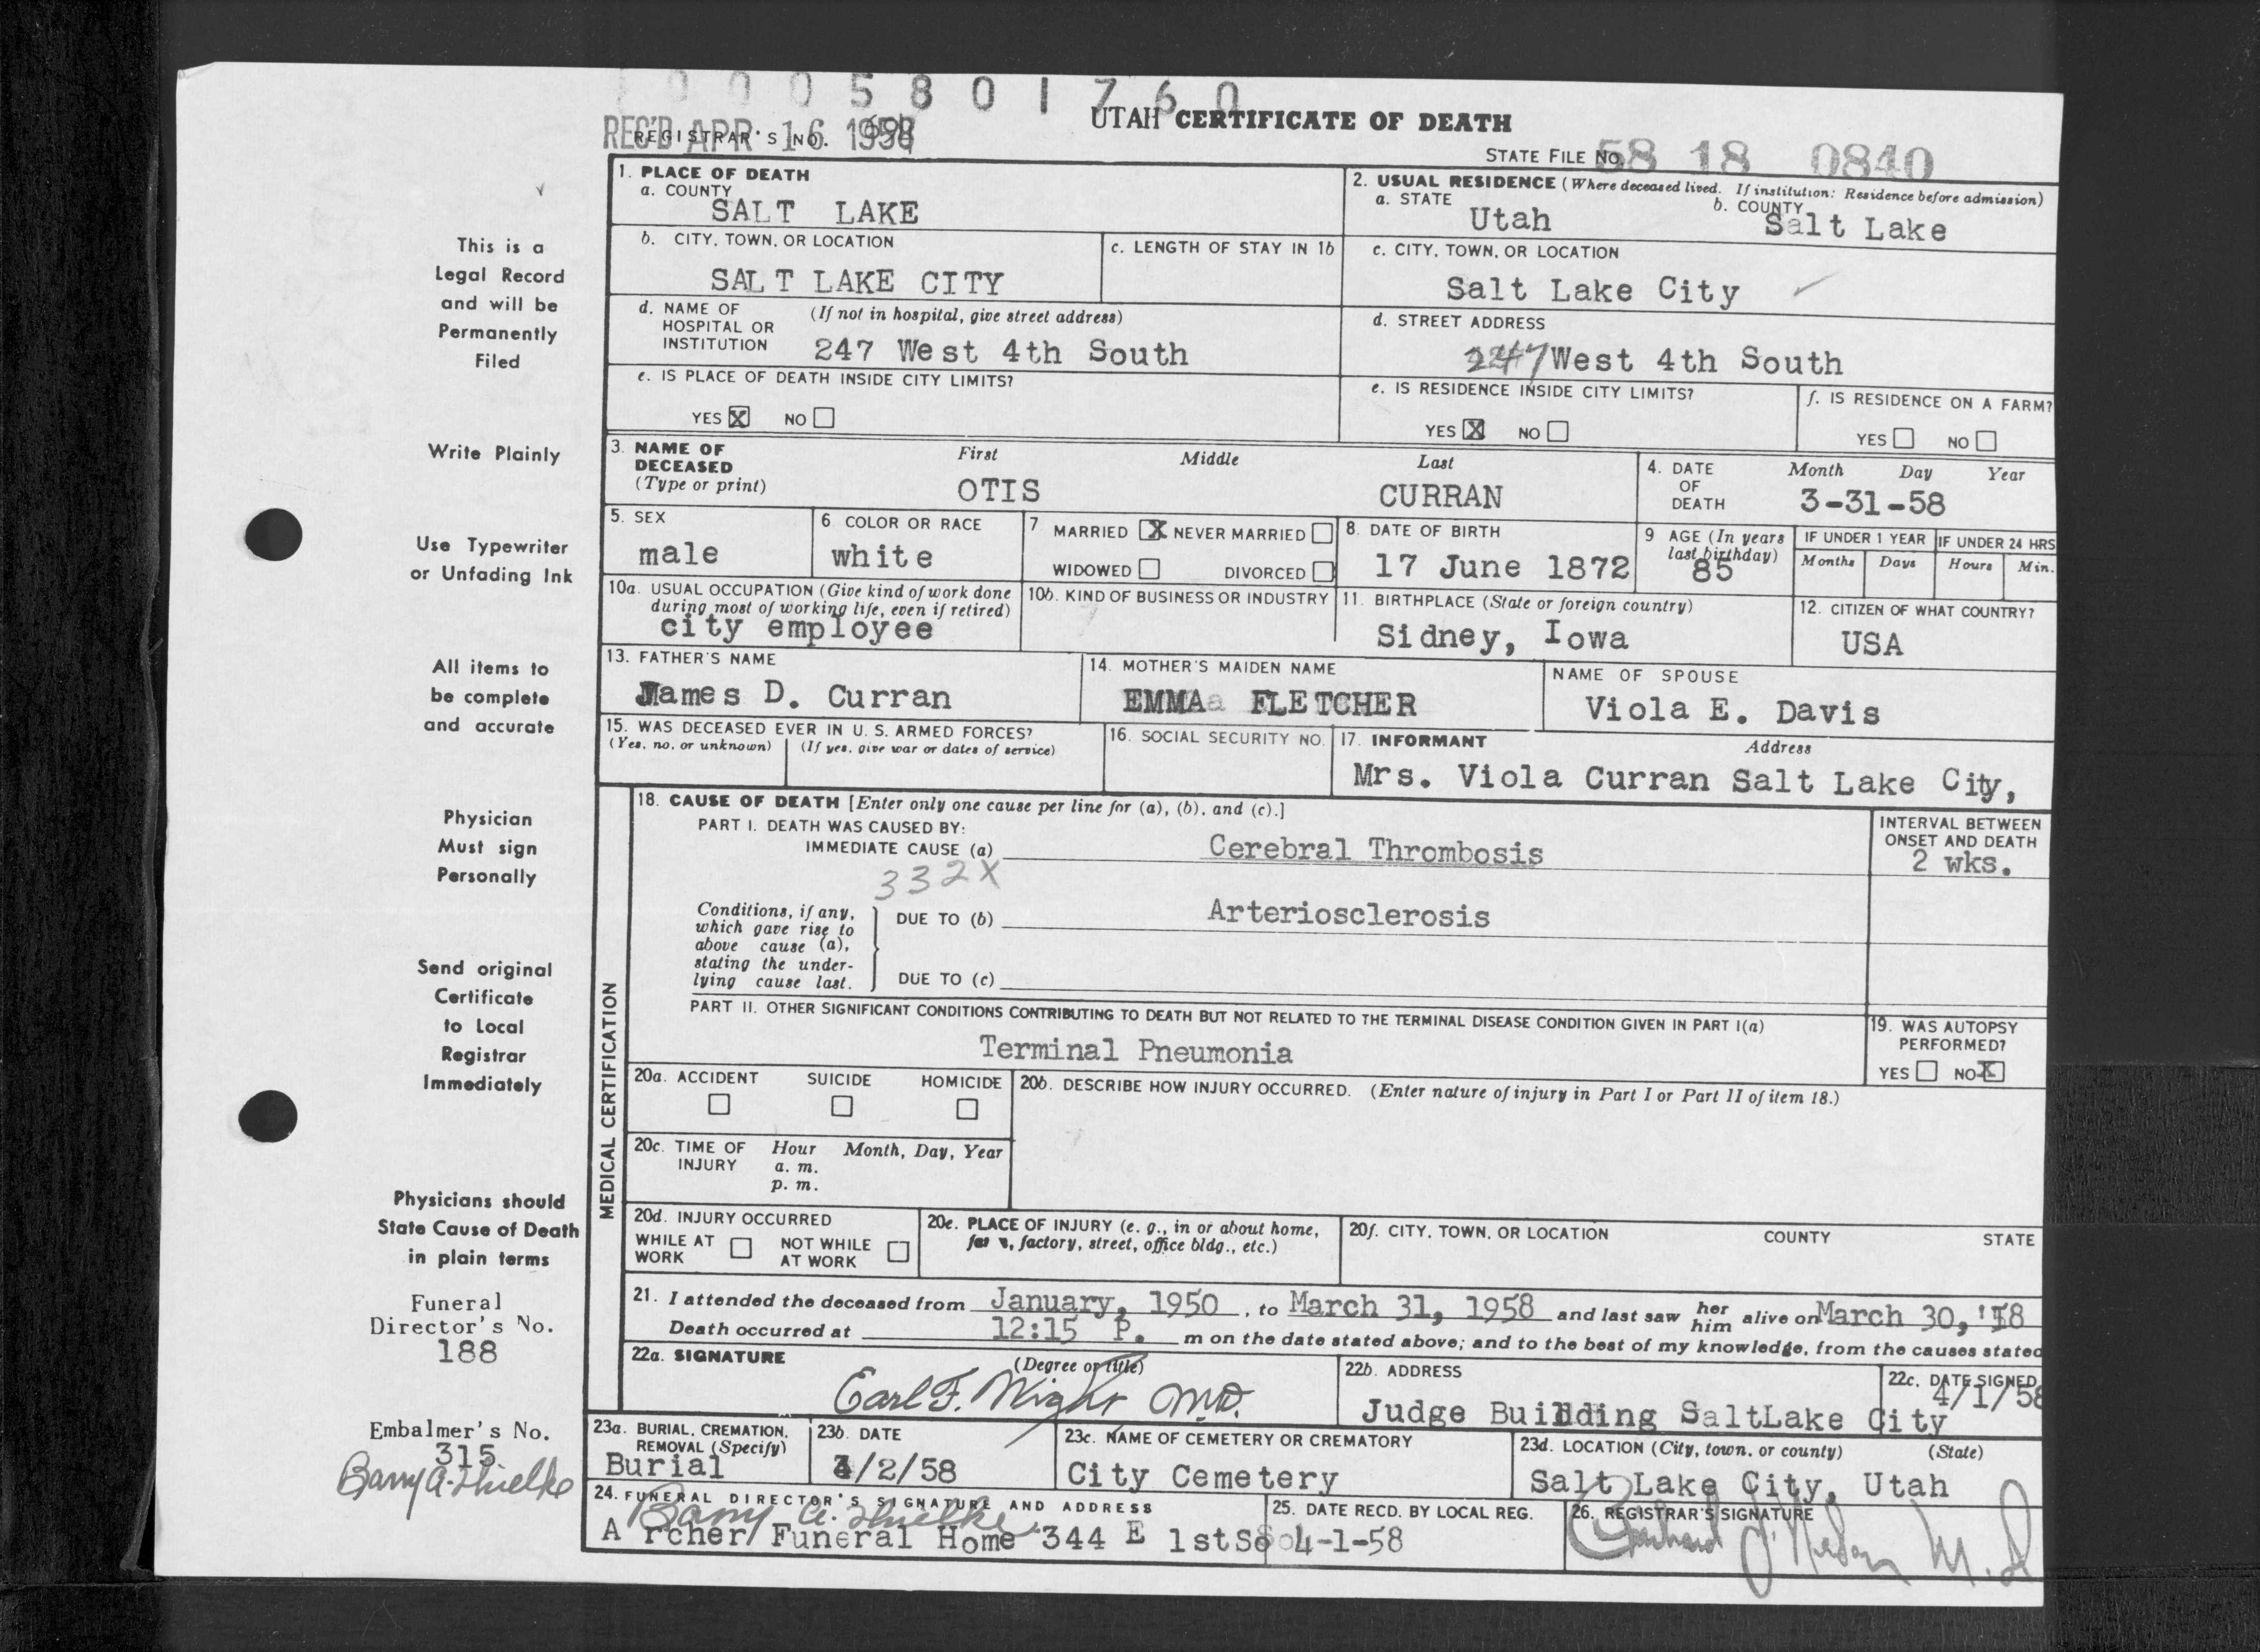 0 0 0 5 8 0 1 7 6 0
REC'D APR 16 1958
REGISTRAR'S NO.
UTAH CERTIFICATE OF DEATH
STATE FILE NO. 58 18 0840
1. PLACE OF DEATH
a. COUNTY
SALT LAKE
2. USUAL RESIDENCE (Where deceased lived. If institution: Residence before admission)
a. STATE
Utah
b. COUNTY
Salt Lake
b. CITY, TOWN, OR LOCATION
SALT LAKE CITY
c. LENGTH OF STAY IN 1b
c. CITY, TOWN, OR LOCATION
Salt Lake City
d. NAME OF HOSPITAL OR INSTITUTION
(If not in hospital, give street address)
247 West 4th South
d. STREET ADDRESS
247 West 4th South
e. IS PLACE OF DEATH INSIDE CITY LIMITS?
YES X NO
e. IS RESIDENCE INSIDE CITY LIMITS?
YES X NO
f. IS RESIDENCE ON A FARM?
YES NO
3. NAME OF DECEASED
(Type or print)
First Middle Last
OTIS CURRAN
4. DATE OF DEATH
Month Day Year
3-31-58
5. SEX
male
6. COLOR OR RACE
white
7. MARRIED X NEVER MARRIED
WIDOWED DIVORCED
8. DATE OF BIRTH
17 June 1872
9 AGE (In years last birthday)
85
IF UNDER 1 YEAR
Months Days
IF UNDER 24 HRS
Hours Min.
10a. USUAL OCCUPATION (Give kind of work done during most of working life, even if retired)
city employee
10b. KIND OF BUSINESS OR INDUSTRY
11. BIRTHPLACE (State or foreign country)
Sidney, Iowa
12. CITIZEN OF WHAT COUNTRY?
USA
13. FATHER'S NAME
James D. Curran
14. MOTHER'S MAIDEN NAME
EMMA FLETCHER
NAME OF SPOUSE
Viola E. Davis
15. WAS DECEASED EVER IN U. S. ARMED FORCES?
(Yes, no, or unknown) (If yes, give war or dates of service)
16. SOCIAL SECURITY NO.
17. INFORMANT Address
Mrs. Viola Curran Salt Lake City,
MEDICAL CERTIFICATION
18. CAUSE OF DEATH [Enter only one cause per line for (a), (b), and (c).]
PART I. DEATH WAS CAUSED BY:
IMMEDIATE CAUSE (a) Cerebral Thrombosis
332X
INTERVAL BETWEEN ONSET AND DEATH
2 wks.
Conditions, if any, which gave rise to above cause (a), stating the underlying cause last.
DUE TO (b) Arteriosclerosis
DUE TO (c)
PART II. OTHER SIGNIFICANT CONDITIONS CONTRIBUTING TO DEATH BUT NOT RELATED TO THE TERMINAL DISEASE CONDITION GIVEN IN PART I(a)
Terminal Pneumonia
19. WAS AUTOPSY PERFORMED?
YES NO X
20a. ACCIDENT SUICIDE HOMICIDE
20b. DESCRIBE HOW INJURY OCCURRED. (Enter nature of injury in Part I or Part II of item 18.)
20c. TIME OF INJURY
Hour Month, Day, Year
a. m.
p. m.
20d. INJURY OCCURRED
WHILE AT WORK NOT WHILE AT WORK
20e. PLACE OF INJURY (e. g., in or about home, farm, factory, street, office bldg., etc.)
20f. CITY, TOWN, OR LOCATION COUNTY STATE
21. I attended the deceased from January, 1950, to March 31, 1958 and last saw her him alive on March 30, '58
Death occurred at 12:15 P. m on the date stated above; and to the best of my knowledge, from the causes stated
22a. SIGNATURE (Degree or title)
Earl F. Wight M.D.
22b. ADDRESS
Judge Building SaltLake City
22c. DATE SIGNED
4/1/58
23a. BURIAL, CREMATION, REMOVAL (Specify)
Burial
23b. DATE
4/2/58
23c. NAME OF CEMETERY OR CREMATORY
City Cemetery
23d. LOCATION (City, town, or county) (State)
Salt Lake City, Utah
24. FUNERAL DIRECTOR'S SIGNATURE AND ADDRESS
Barry A. Thielke
Archer Funeral Home 344 E 1stSo
25. DATE RECD. BY LOCAL REG.
4-1-58
26. REGISTRAR'S SIGNATURE
This is a
Legal Record
and will be
Permanently
Filed
Write Plainly
Use Typewriter
or Unfading Ink
All items to
be complete
and accurate
Physician
Must sign
Personally
Send original
Certificate
to Local
Registrar
Immediately
Physicians should
State Cause of Death
in plain terms
Funeral
Director's No.
188
Embalmer's No.
315
Barry A. Thielke